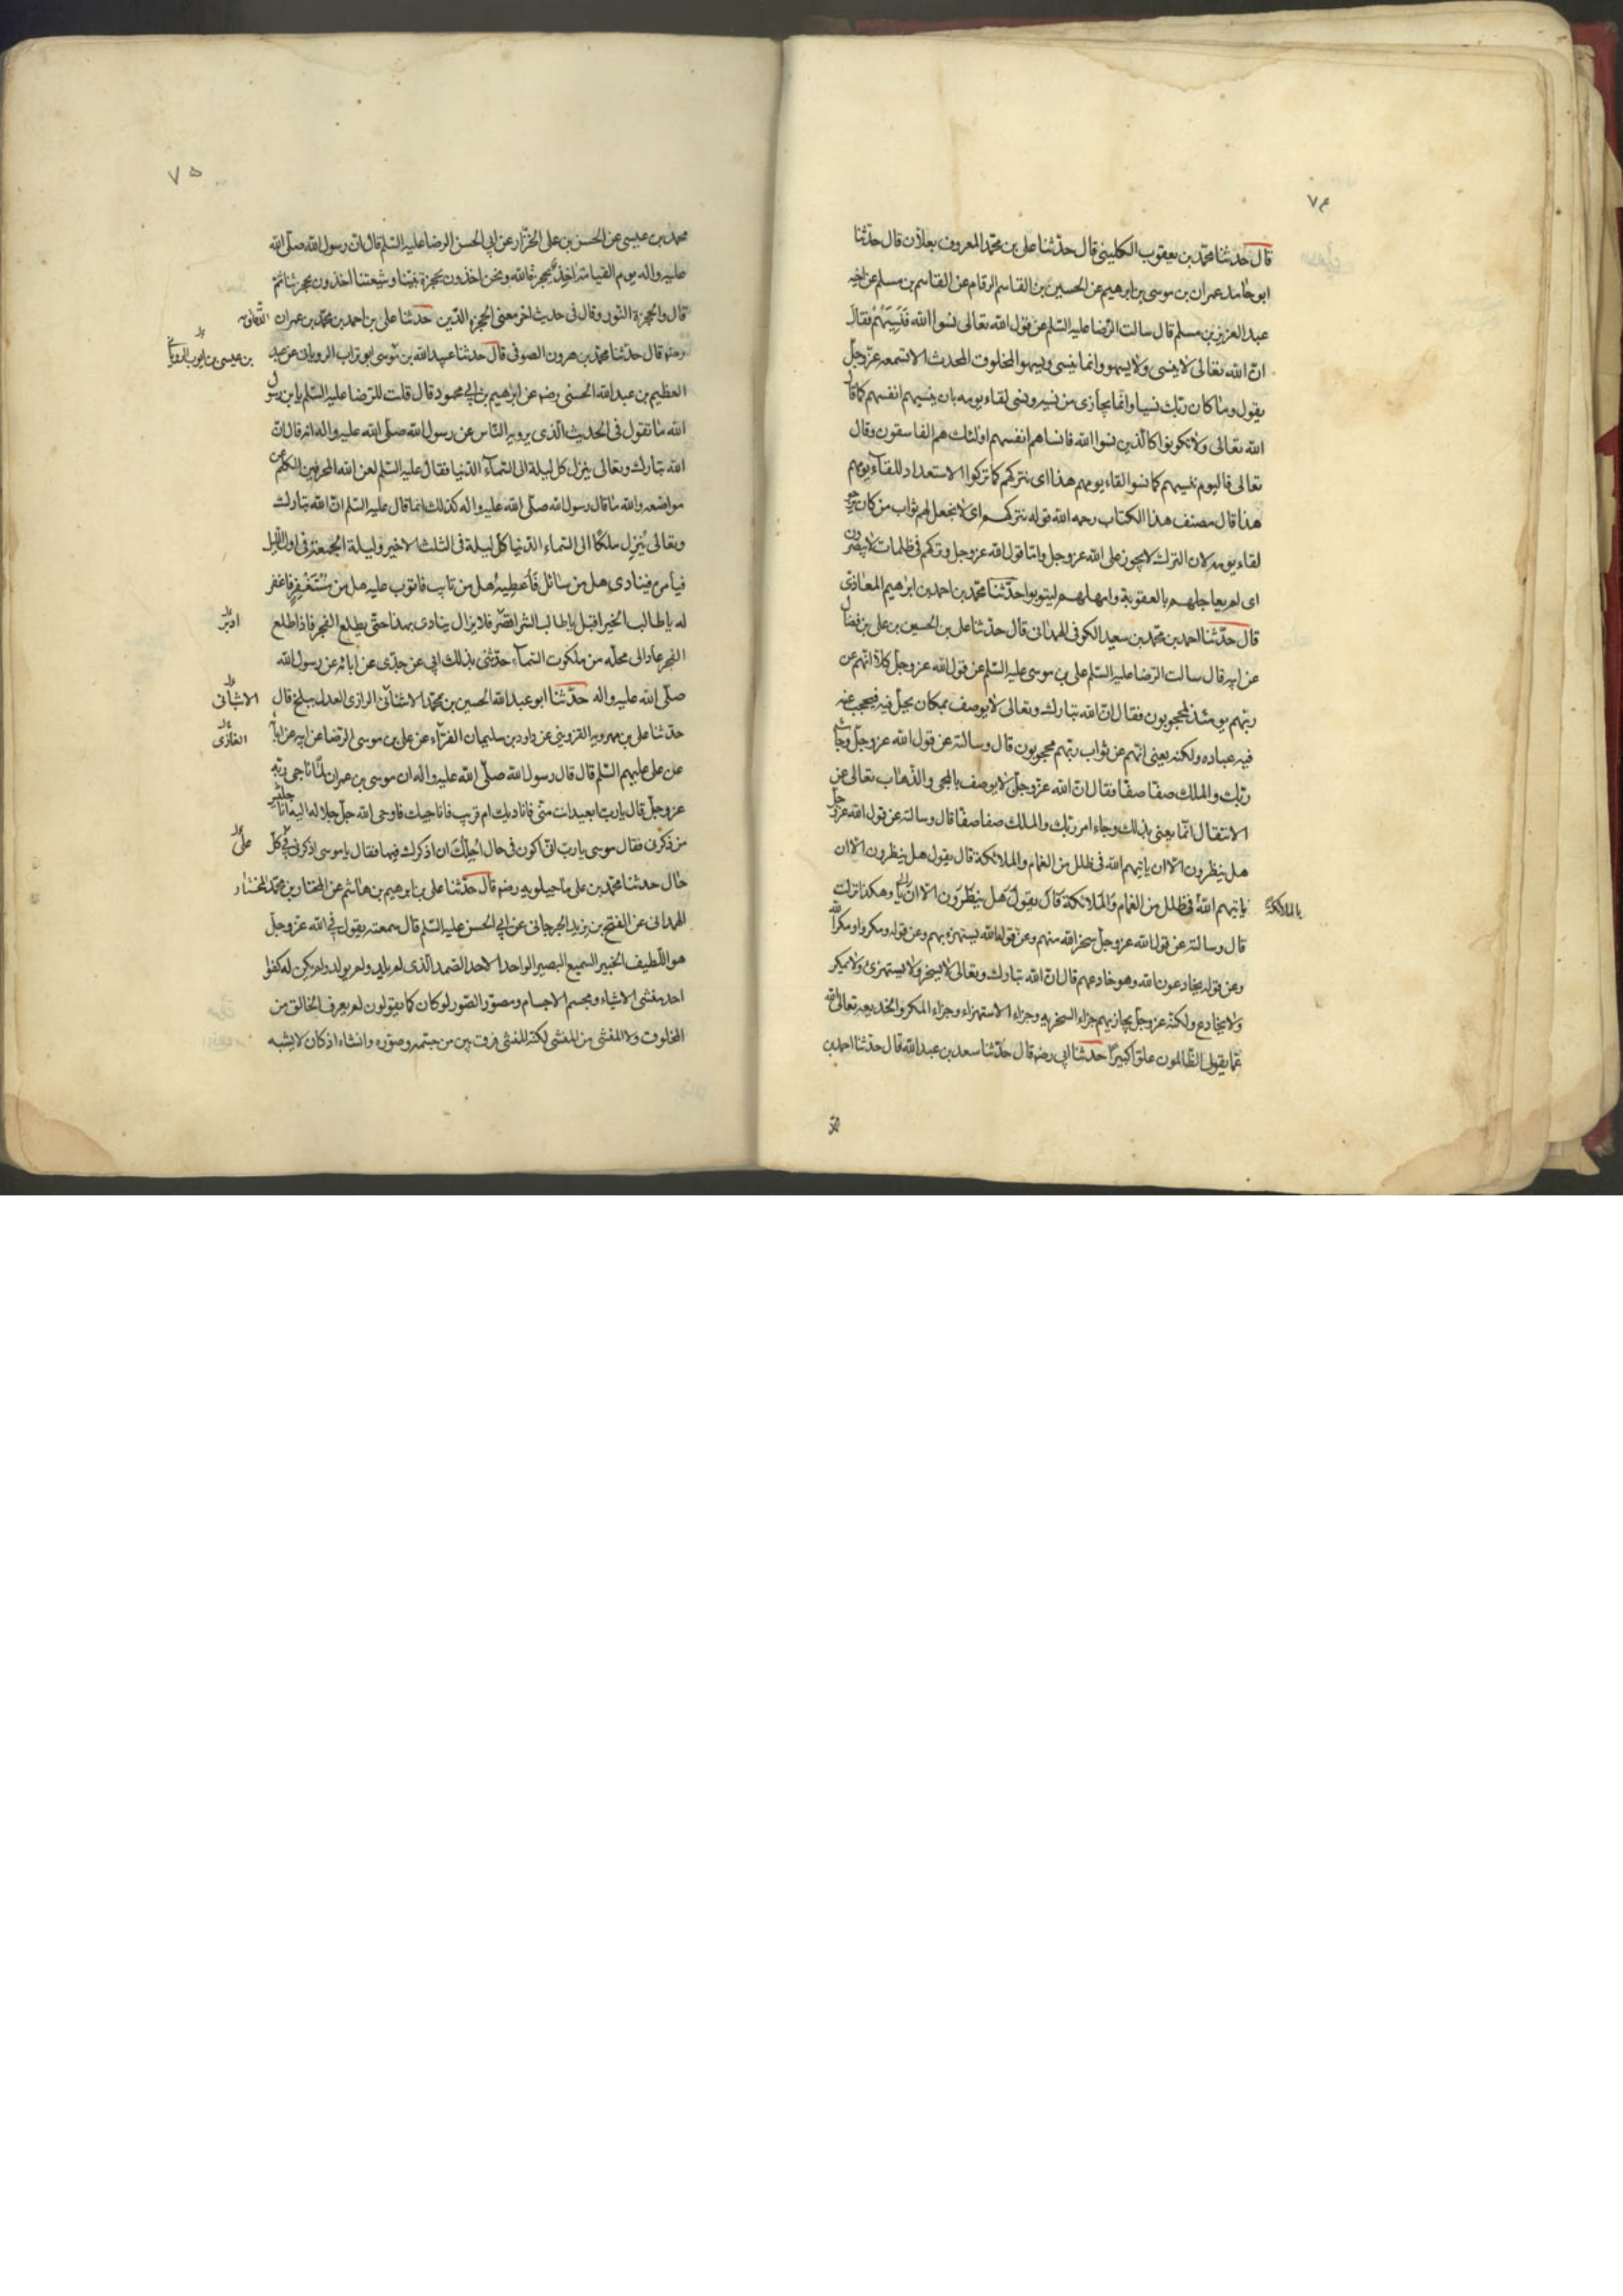 ٧٤
قال حدثنا محمد بن يعقوب الكلينى قال حدثنا على بن محمد المعروف بعلان قال حدثنا
ابو حامد عمران بن موسى بن ابرهيم عن الحسين بن القاسم الرقام عن القاسم بن مسلم عن اخيه
عبد العزيز بن مسلم قال سالت الرضا عليه السلم عن قول الله تعالى نسوا الله فَنَسِيَهُمْ فقال
ان الله تعالى لا ينسى ولا يسهو وانما ينسى ويسهو المخلوق المحدث الا تسمعه عز وجل
يقول وما كان ربك نسيا وانما يجازى من نسيه ونسى لقاء يومه بان ينسيهم انفسهم كما قال
الله تعالى ولا تكونوا كالذين نسوا الله فانساهم انفسهم اولئك هم الفاسقون وقال
تعالى فاليوم ننسيهم كما نسوا لقاء يومهم هذا اى نتركهم كما تركوا الاستعداد للقاء يومهم
هذا قال مصنف هذا الكتاب رحمه الله قوله نتركهم اى لا نجعل لهم ثواب من كان يرجو
لقاء يومه لان الترك لا يجوز على الله عز وجل واما قول الله عز وجل وتركهم فى ظلمات لا يبصرون
اى لم يعاجلهم بالعقوبة وامهلهم ليتوبوا حدثنا محمد بن احمد بن ابرهيم المعاذى
قال حدثنا احمد بن محمد بن سعيد الكوفى الهمدانى قال حدثنا على بن الحسين بن على بن فضال
عن ابيه قال سالت الرضا عليه السلم على بن موسى عليه السلم عن قول الله عز وجل كلا انهم عن
ربهم يومئذ لمحجوبون فقال ان الله تبارك وتعالى لا يوصف بمكان يحل فيه فيحجب عنه
فيه عباده ولكنه يعنى انهم عن ثواب ربهم محجوبون قال وسالته عن قول الله عز وجل وجاء
ربك والملك صفا صفا فقال ان الله عز وجل لا يوصف بالمجى والذهاب تعالى عن
الانتقال انما يعنى بذلك وجاء امر ربك والملك صفا صفا قال وسالته عن قول الله عز وجل
هل ينظرون الا ان ياتيهم الله فى ظلل من الغمام والملائكة قال يقول هل ينظرون الا ان
ياتيهم الله فى ظلل من الغمام والملائكة قال يقول هل ينظرون الا ان وهكذا نزلت
بالملائكة
قال وسالته عن قول الله عز وجل سخر الله منهم وعن قوله الله يستهزء بهم وعن قوله ومكروا ومكر الله
وعن قوله يخادعون الله وهو خادعهم قال ان الله تبارك وتعالى لا يسخر ولا يستهزئ ولا يمكر
ولا يخادع ولكنه عز وجل يجازيهم جزاء السخرية وجزاء الاستهزاء وجزاء المكر والخديعة تعالى الله
عما يقول الظالمون علوا كبيرا حدثنا ابى رضه قال حدثنا سعد بن عبد الله قال حدثنا احمد بن
محمد
٧٥
محمد بن عيسى عن الحسن بن على الخزاز عن ابى الحسن الرضا عليه السلم قال ان رسول الله صلى الله
عليه واله يوم القيامة اخذ بحجزة الله ونحن اخذون بحجزة نبينا وشيعتنا اخذون بحجزتنا ثم
قال والحجزة النور وقال فى حديث اخر معنى الحجزة الدين حدثنا على بن احمد بن محمد بن عمران الدقاق
رحمه قال حدثنا محمد بن هرون الصوفى قال حدثنا عبيد الله بن موسى ابو تراب الرويانى عن عبد
بن عيسى بن ايوب الرويانى
العظيم بن عبد الله الحسنى رضه عن ابرهيم بن ابى محمود قال قلت للرضا عليه السلم يا بن رسول
الله ما تقول فى الحديث الذى يرويه الناس عن رسول الله صلى الله عليه واله انه قال ان
الله تبارك وتعالى ينزل كل ليلة الى السماء الدنيا فقال عليه السلم لعن الله المحرفين الكلم عن
مواضعه والله ما قال رسول الله صلى الله عليه واله كذلك انما قال عليه السلم ان الله تبارك
وتعالى يُنزِل ملكًا الى السماء الدنيا كل ليلة فى الثلث الاخير وليلة الجمعة فى اول الليل
فيامره فينادى هل من سائل فَأُعطِيهُ هل من تايب فاتوب عليه هل من مُسْتَغْفِرٍ فاغفر
له يا طالب الخير اقبل يا طالب الشر اقصر فلا يزال ينادى بهذا حتى يطلع الفجر فاذا طلع
ادبر
الفجر عاد الى محله من ملكوت السماء حدثنى بذلك ابى عن جدى عن ابائه عن رسول الله
صلى الله عليه واله حدثنا ابو عبد الله الحسين بن محمد الاشنانى الرازى العدل ببلخ قال
الاشنانى
حدثنا على بن مهرويه القزوينى عن داود بن سليمان الفراء عن على بن موسى الرضا عن ابيه عن ابائه
الغازى
عن على عليهم السلم قال قال رسول الله صلى الله عليه واله ان موسى بن عمران لما ناجى ربه
عز وجل قال يا رب ابعيد انت منى فاناديك ام قريب فاناجيك فاوحى الله جل جلاله اليه انا جليس
من ذكرنى فقال موسى يا رب انى اكون فى حال اجلك ان اذكرك فيها فقال يا موسى اذكرنى فى كل
على
حال حدثنا محمد بن على ماجيلويه رضه قال حدثنا على بن ابرهيم بن هاشم عن المختار بن محمد المختار
الهمدانى عن الفتح بن يزيد الجرجانى عن ابى الحسن عليه السلم قال سمعته يقول فى الله عز وجل
هو اللطيف الخبير السميع البصير الواحد الاحد الصمد الذى لم يلد ولم يولد ولم يكن له كفوا
احد منشئ الاشياء ومجسم الاجسام ومصور الصور لو كان كما يقولون لم يعرف الخالق من
المخلوق ولا المنشى من المنشى لكنه المنشى فرق بين من جسمه وصوره وانشاه اذ كان لا يشبه